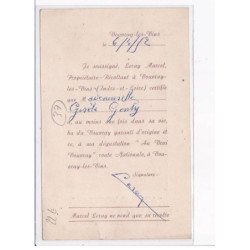 Vouvray-les-Vins
le 6/4/52
Je soussigné, Leray Marcel,
Propriétaire-Récoltant à Vouvray-
les-Vins (Indre-et-Loire) certifie
que Mademoiselle
Gisèle
(37)
a, au moins une fois dans sa vie,
bu du Vouvray garanti d'origine et
ce, à sa dégustation "Au Vrai
Vouvray" route Nationale, à Vou-
vray-les-Vins.
Signature :
Marcel Leray ne vend que sa récolte